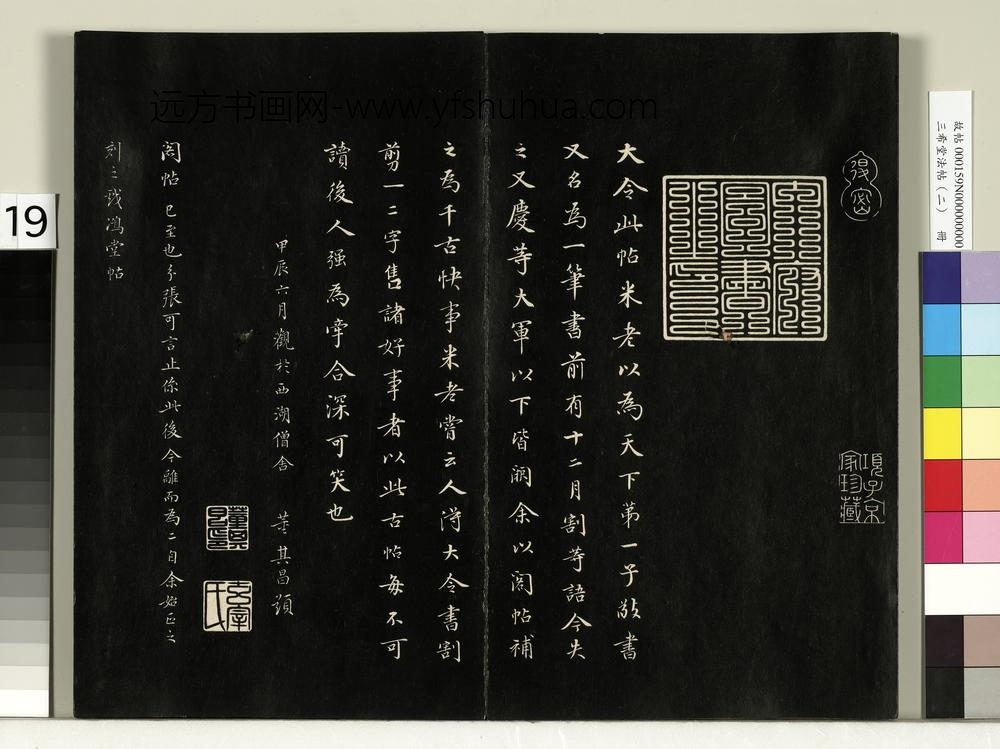 大令此帖米老以為天下第一子敬書
又名為一筆書前有十二月割等語今失
之又慶等大軍以下皆闕余以閣帖補
之為千古快事米老嘗云人得大令書割
剪一二字售諸好事者以此古帖每不可
讀後人强為牽合深可笑也
甲辰六月觀於西湖僧舍 董其昌題
閣帖已至也分張可言止係此後今離而為二自余始正之
刻之戲鴻堂帖
項子京家珍藏
得密
董其昌印
玄宰氏
19
故帖 000159N000000000
三希堂法帖(二) 冊
远方书画网-www.yfshuhua.com